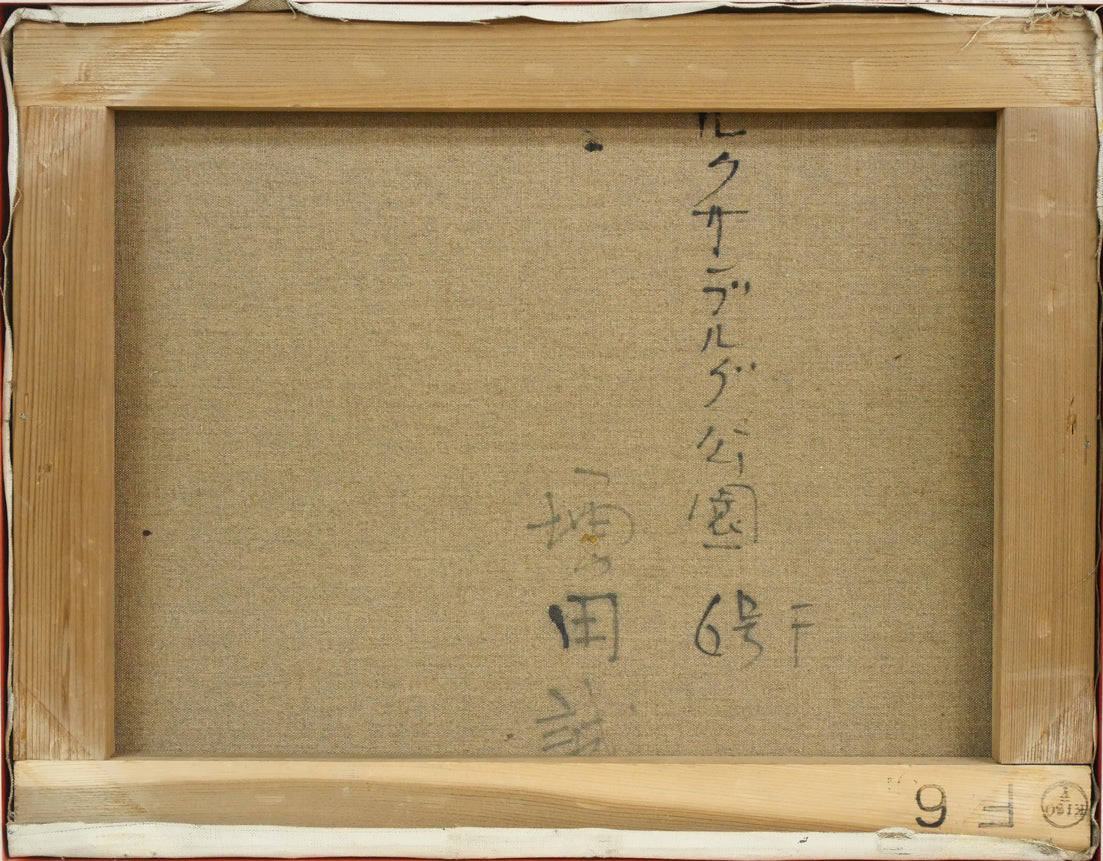 ルクサンブルグ公園 6号F
増田誠
F6
KISO